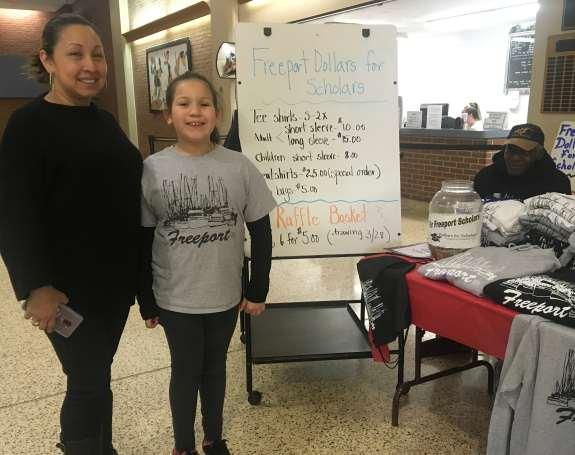 Freeport Dollars for
Scholars
Tee shirts S-2x
Adult < short sleeve - $10.00
long sleeve - $15.00
Children short sleeve - 8.00
$25.00 (special order)
bags $5.00
Raffle Basket
6 for $5.00 (drawing 3/28)
Freeport
for Freeport Scholars
Freeport
Dollars
for